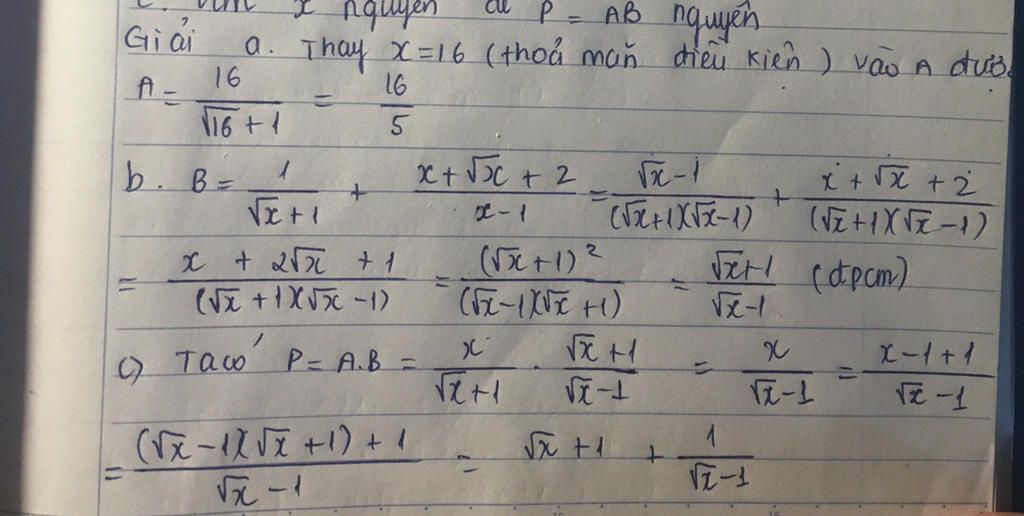 x nguyên để P = AB nguyên
Giải a. Thay x = 16 (thoả mãn điều kiện) vào A
A = 16/(√16 + 1) = 16/5
b. B = 1/(√x + 1) + (x + √x + 2)/(x - 1) = (√x - 1)/((√x + 1)(√x - 1)) + (x + √x + 2)/((√x + 1)(√x - 1))
= (x + 2√x + 1)/((√x + 1)(√x - 1)) = (√x + 1)²/((√x - 1)(√x + 1)) = (√x + 1)/(√x - 1) (đpcm)
c) Ta có P = A.B = x/(√x + 1) . (√x + 1)/(√x - 1) = x/(√x - 1) = (x - 1 + 1)/(√x - 1)
= ((√x - 1)(√x + 1) + 1)/(√x - 1) = √x + 1 + 1/(√x - 1)